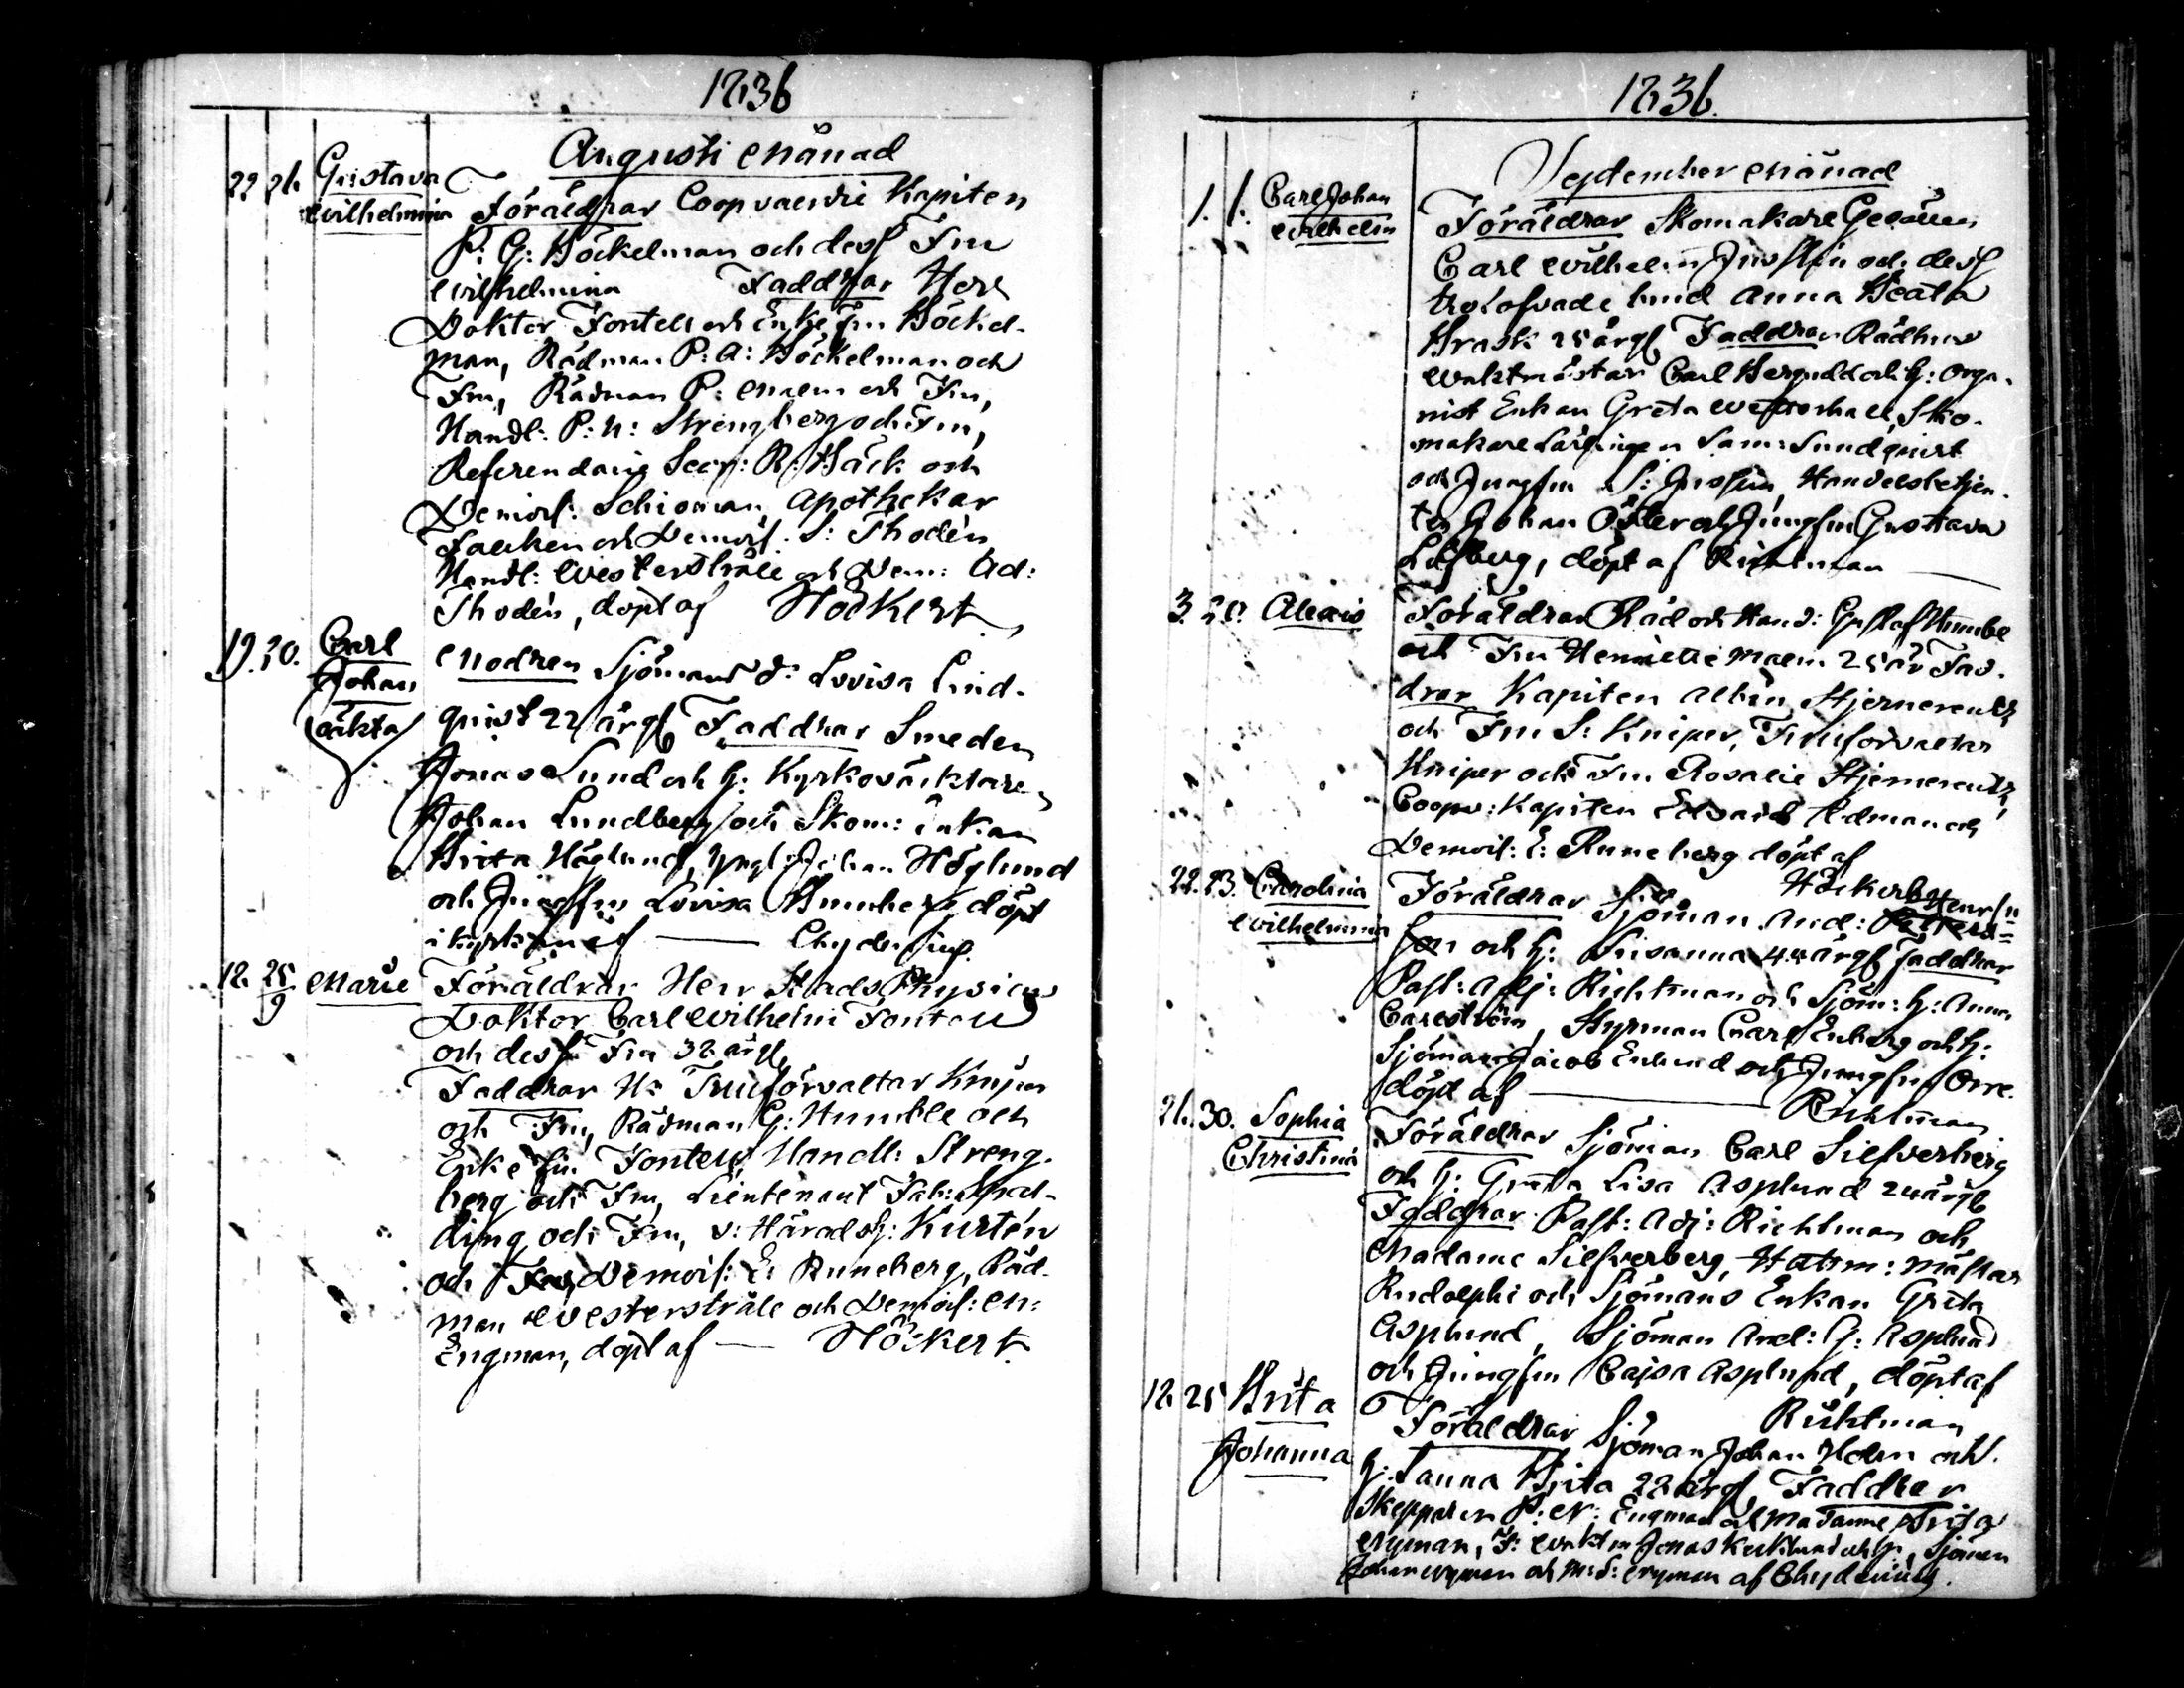 1836
Augusti Månad
22 26 Gustava Wilhelmina Föräldrar Coopvaerdie Kapiten
P: G: Böckelman och dess Fru
Wilhelmina Faddrar Herr
Doktor Fontell och Enke Fru Böckel-
man, Rådman P: A: Böckelman och
Fru, Rådman P: Malm och Fru,
Handl: P: N: Strengberg och Fru,
Referendarie Secr: R: Bäck och
Demois: Schioman, Apothekar
Faecken och Demois: S: Thodén
Handl: Westerstråle och Dem: Ad:
Thodén, döpt af Höckert
19. 20. Carl Johan oäkta Modren Sjömans d: Lovisa Lind-
quist 22 årig Faddrar Smeden
Jonas Lund och h: Kyrkoväcktaren
Johan Lundberg och Skom: Enkan
Brita Höglund, Yngl: Johan Höglund
och Jungfru Lovisa döpt
i kyrkan af — Chydenius.
18. 25/9 Marie Föräldrar Herr Stads Physicus
Doktor Carl Wilhelm Fontell
och dess Fru 32 årig
Faddrar Hr Tullförvaltar Kniper
och Fru, Rådman G: Humble och
Enke fru Fontell, Handl: Streng-
berg och Fru, Lieutenant Fab: Spal-
ding och Fru, v: Häradsh: Kurtén
och Fru, Demois: E: Runeberg, Råd-
man Westerstråle och Demois: M:
Engman, döpt af — Höckert.
1836.
September Månad
1. 1. Carl Johan Wilhelm Föräldrar Skomakare Gesällen
Carl Wilhelm Juslin och dess
trolofvade hud Anna Beata
Brask 25 årig Faddrar Rådhus
Waktmästar Carl Berguld och h: Orga-
nist Enkan Greta Westerhall, Sko-
makare Lärlingen Sam: Sundquist
och Jungfru S: Juslin, Handelsbetjen-
ten Johan Öster och Jungfru Gustava
Löfberg, döpt af Richtman
3. 20. Alexis Föräldrar Råd och Hand: Gustaf Humble
och Fru Henriette Malm 25 år Fad-
drar Kapiten Albin Stjerncreutz
och Fru S: Kniper, Tullförvaltar
Kniper och Fru Rosalie Stjerncreutz,
Coopv: Kapiten Edvard Edman och
Demois: E: Runeberg döpt af
Höckert
22. 23. Carolina Wilhelmina Föräldrar Sjöman And: Petters-
son och h: Susanna 44 årig Faddrar
Past: Adj: Richtman och Sjöm: h: Anna
Carlström, Styrman Carl Enberg och h:
Sjöman Jacob Enlund och Jungfru Orre.
döpt af — Richtman
26. 30. Sophia Christina Föräldrar Sjöman Carl Silfverberg
och h: Greta Lisa Asplund 24 årig
Faddrar Past: Adj: Richtman och
Madame Silfverberg, Hattm: mästar
Rudolphi och Sjömans Enkan Greta
Asplund, Sjöman And: G: Asplund
och Jungfru Cajsa Asplund, döpt af
Richtman
18. 25 Brita Johanna Föräldrar Sjöman Johan Holm och
h: Sanna Brita 22 årig Faddrer
Skepparen P: N: Engman och Madame Brita
Nyman, Jonas och h:, Sjöman
Johan Nyman och Nyman af Chydenius.